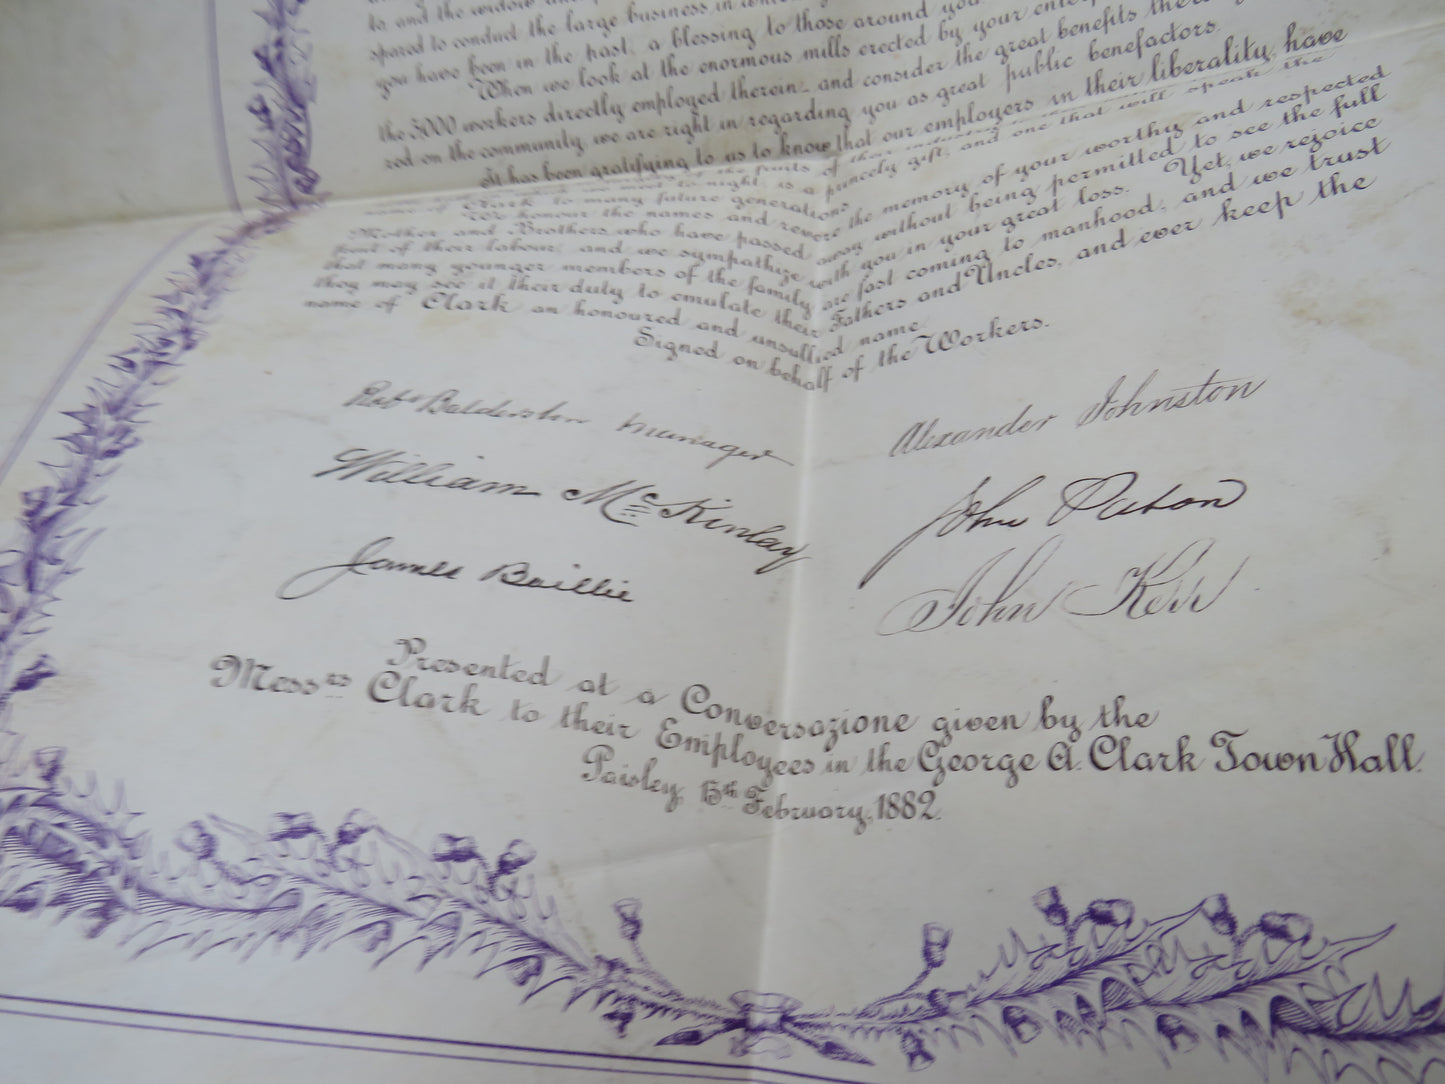 to and the widow
spared to conduct the large business in
you have been in the past, a blessing to those around you
When we look at the enormous mills erected by your
the 5000 workers directly employed therein, and consider the great benefits
red on the community, we are right in regarding you as great public benefactors.
It has been gratifying to us to know that our employers in their liberality, have
the fruits of their industry
we meet to-night, is a princely gift, and one that will speak the
name of Clark to many future generations.
We honour the names and revere the memory of your worthy and respected
Mother and Brothers who have passed away without being permitted to see the full
fruit of their labour, and we sympathize with you in your great loss. Yet, we rejoice
that many younger members of the family are fast coming to manhood, and we trust
they may see it their duty to emulate their Fathers and Uncles, and ever keep the
name of Clark an honoured and unsullied name.
Signed on behalf of the Workers.
Robt Balderston Manager
Alexander Johnston
William McKinlay
John Paton
James Baillie
John Kerr
Presented at a Conversazione given by the
Messrs Clark to their Employees in the George A. Clark Town Hall.
Paisley, 15th February, 1882.